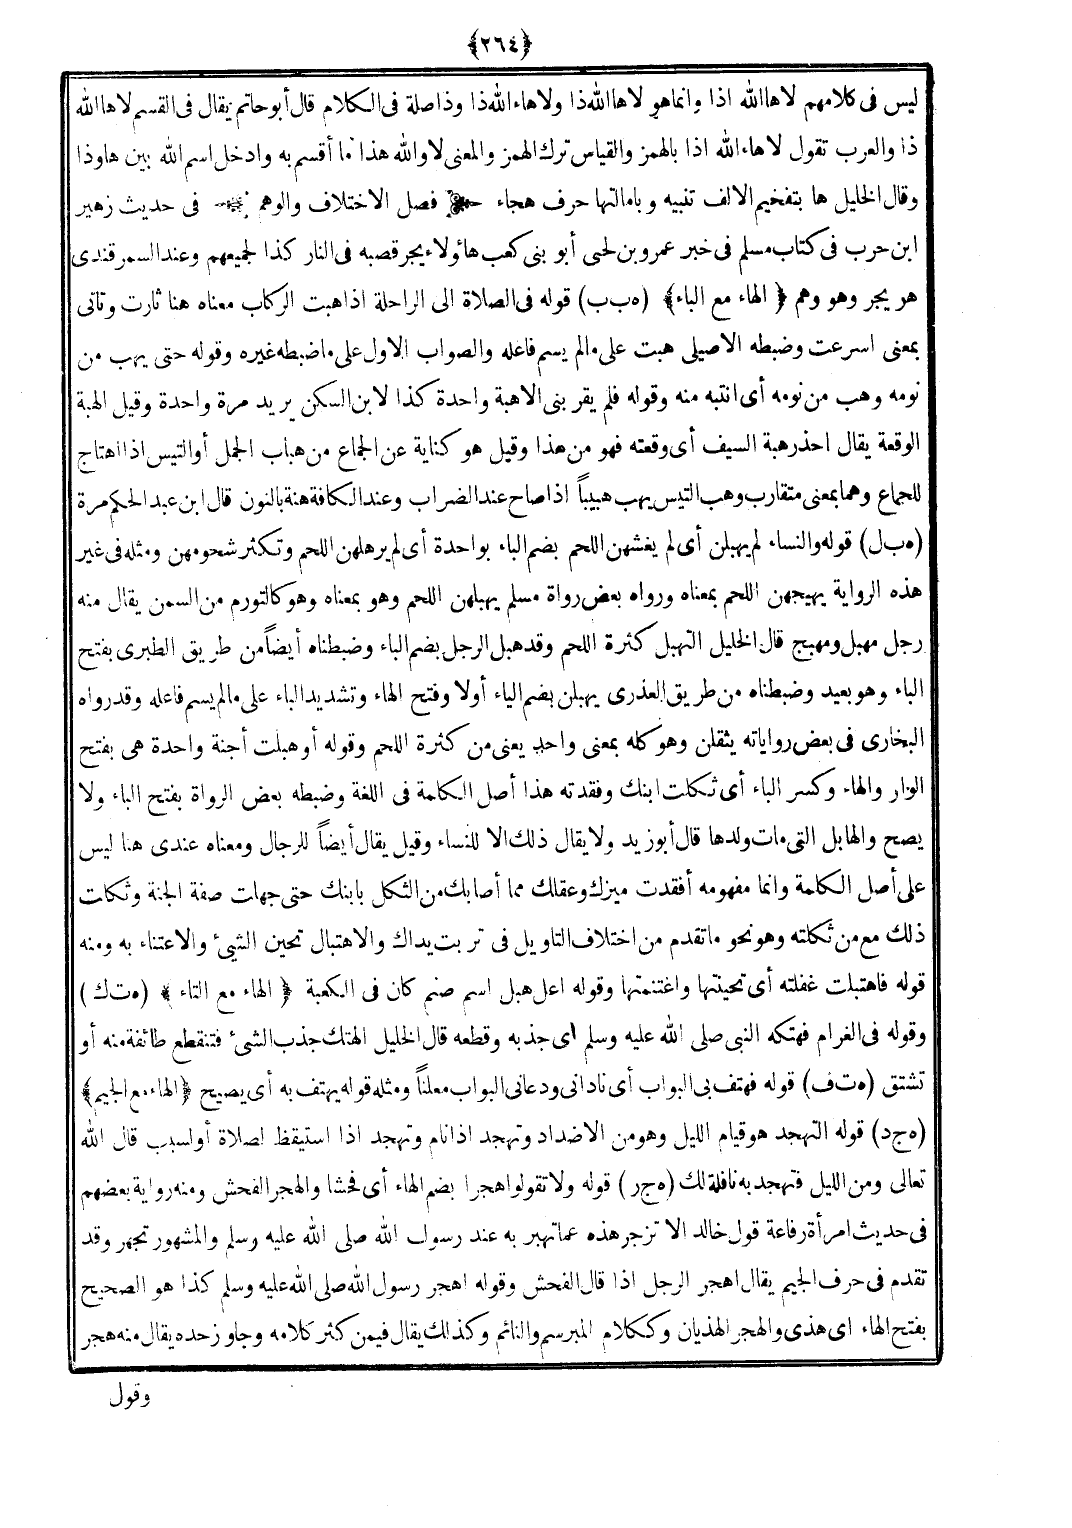 ﴿٢٦٤﴾
ليس فى كلامهم لاها الله اذا وانما هو لاها الله ذا ولاهاء الله ذا وذا صلة فى الكلام قال أبو حاتم يقال فى القسم لاها الله
ذا والعرب تقول لاهاء الله اذا بالهمز والقياس ترك الهمز والمعنى لا والله هذا ما أقسم به وادخل اسم الله بين ها وذا
وقال الخليل ها بتفخيم الالف تنبيه وبامالتها حرف هجاء فصل الاختلاف والوهم فى حديث زهير
ابن حرب فى كتاب مسلم فى خبر عمرو بن لحى أبو بنى كعب هاؤلاء يجر قصبه فى النار كذا لجميعهم وعند السمرقندى
هو يجر وهو وهم ﴿ الهاء مع الباء﴾ (ه ب ب) قوله فى الصلاة الى الراحلة اذا هبت الركاب معناه هنا ثارت وتاتى
بمعنى اسرعت وضبطه الاصيلى هبت على مالم يسم فاعله والصواب الاول على ما ضبطه غيره وقوله حتى يهب من
نومه وهب من نومه أى انتبه منه وقوله فلم يقر بنى الاهبة واحدة كذا لابن السكن يريد مرة واحدة وقيل الهبة
الوقعة يقال احذر هبة السيف أى وقعته فهو من هذا وقيل هو كناية عن الجماع من هباب الجمل أو التيس اذا اهتاج
للجماع وهما بمعنى متقارب وهب التيس يهب هبيباً اذا صاح عند الضراب وعند الكافة هنة بالنون قال ابن عبد الحكم مرة
(ه ب ل) قوله والنساء لم يهبلن أى لم يغشهن اللحم بضم الباء بواحدة أى لم يرهلهن اللحم وتكثر شحومهن ومثله فى غير
هذه الرواية يهيجهن اللحم بمعناه ورواه بعض رواة مسلم يهبلهن اللحم وهو بمعناه وهو كالتورم من السمن يقال منه
رجل مهبل ومهبج قال الخليل التهبل كثرة اللحم وقد هبل الرجل بضم الباء وضبطناه أيضاً من طريق الطبرى بفتح
الباء وهو بعيد وضبطناه من طريق العذرى يهبلن بضم الياء أولا وفتح الهاء وتشديد الباء على مالم يسم فاعله وقد رواه
البخارى فى بعض رواياته يثقلن وهو كله بمعنى واحد يعنى من كثرة اللحم وقوله أو هبلت أجنة واحدة هى بفتح
الواو والهاء وكسر الباء أى ثكلت ابنك وفقدته هذا أصل الكلمة فى اللغة وضبطه بعض الرواة بفتح الباء ولا
يصح والهابل التى مات ولدها قال أبو زيد ولا يقال ذلك الا للنساء وقيل يقال أيضاً للرجال ومعناه عندى هنا ليس
على أصل الكلمة وانما مفهومه أفقدت ميزك وعقلك مما أصابك من الثكل بابنك حتى جهلت صفة الجنة وثكلت
ذلك مع من ثكلته وهو نحو ما تقدم من اختلاف التاويل فى تربت يداك والاهتبال تحين الشىء والاعتناء به ومنه
قوله فاهتبلت غفلته أى تحينتها واغتنمتها وقوله اعل هبل اسم صنم كان فى الكعبة ﴿ الهاء مع التاء ﴾ (ه ت ك)
وقوله فى الغرام فهتكه النبى صلى الله عليه وسلم أى جذبه وقطعه قال الخليل الهتك جذب الشىء فتنقطع طائفة منه أو
تشتق (ه ت ف) قوله فهتف بى البواب أى نادانى ودعانى البواب معلناً ومثله قوله يهتف به أى يصيح ﴿الهاء مع الجيم﴾
(ه ج د) قوله التهجد هو قيام الليل وهو من الاضداد وتهجد اذا نام وتهجد اذا استيقظ لصلاة أو لسبب قال الله
تعالى ومن الليل فتهجد به نافلة لك (ه ج ر) قوله ولا تقولوا هجرا بضم الهاء أى فحشا والهجر الفحش ومنه رواية بعضهم
فى حديث امرأة رفاعة قول خالد الا تزجر هذه عما تهجر به عند رسول الله صلى الله عليه وسلم والمشهور تجهر وقد
تقدم فى حرف الجيم يقال اهجر الرجل اذا قال الفحش وقوله اهجر رسول الله صلى الله عليه وسلم كذا هو الصحيح
بفتح الهاء اى هذى والهجر الهذيان وككلام المبرسم والنائم وكذالك يقال فيمن كثر كلامه وجاوز حده يقال منه هجر
وقول